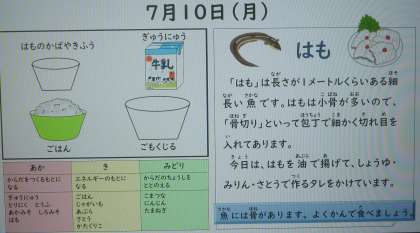 7月10日(月)
はものかばやきふう
ぎゅうにゅう
牛乳
ごはん
ごもくじる
あか
き
みどり
からだをつくるもとに
なる
エネルギーのもとに
なる
からだのちょうしを
ととのえる
ぎゅうにゅう
とりにく とうふ
あかみそ しろみそ
はも
ごはん
じゃがいも
あぶら
さとう
かたくりこ
こまつな
にんじん
たまねぎ
はも
「はも」は長さが1メートルくらいある細
長い魚です。はもは小骨が多いので、
「骨切り」といって包丁で細かく切れ目を
入れてあります。
今日は、はもを油で揚げて、しょうゆ・
みりん・さとうで作るタレをかけています。
魚には骨があります。よくかんで食べましょう。